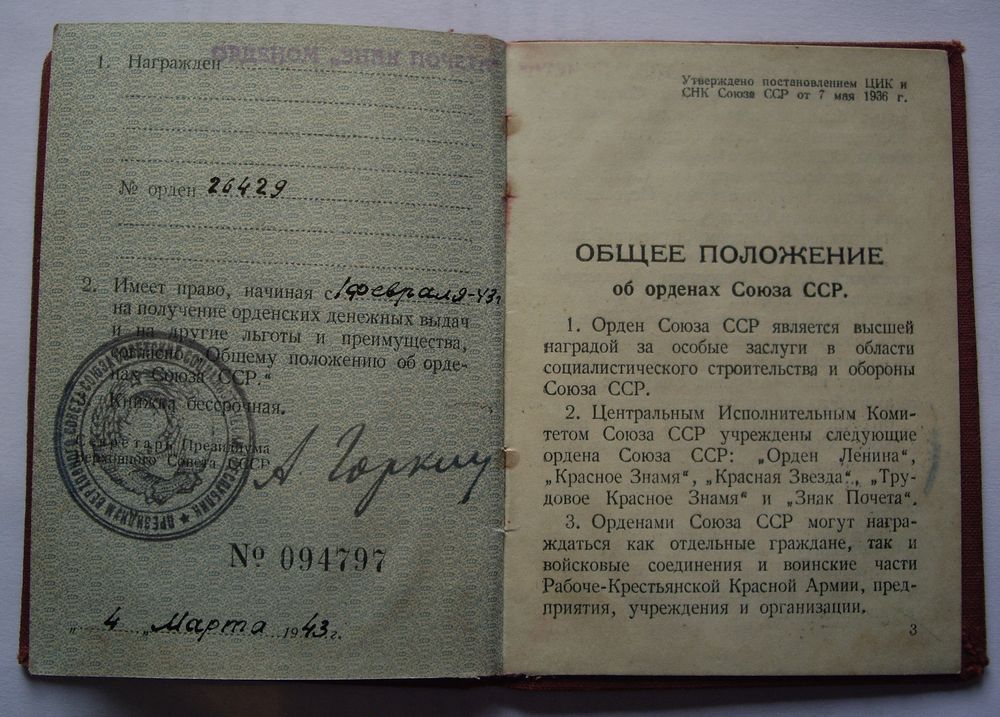 1. Награжден ОРДЕНОМ „ЗНАК ПОЧЕТА“
№ орден 26429
2. Имеет право, начиная с 1 февраля-43 г
на получение орденских денежных выдач
и на другие льготы и преимущества,
согласно „Общему положению об орде-
нах Союза ССР.“
Книжка бессрочная.
Секретарь Президиума
Верховного Совета СССР
А Горкин
№ 094797
„ 4 „ Марта 1943 г.
Утверждено постановлением ЦИК и
СНК Союза ССР от 7 мая 1936 г.
ОБЩЕЕ ПОЛОЖЕНИЕ
об орденах Союза ССР.
1. Орден Союза ССР является высшей
наградой за особые заслуги в области
социалистического строительства и обороны
Союза ССР.
2. Центральным Исполнительным Коми-
тетом Союза ССР учреждены следующие
ордена Союза ССР: „Орден Ленина“,
„Красное Знамя“, „Красная Звезда“, „Тру-
довое Красное Знамя“ и „Знак Почета“.
3. Орденами Союза ССР могут награ-
ждаться как отдельные граждане, так и
войсковые соединения и воинские части
Рабоче-Крестьянской Красной Армии, пред-
приятия, учреждения и организации.
3